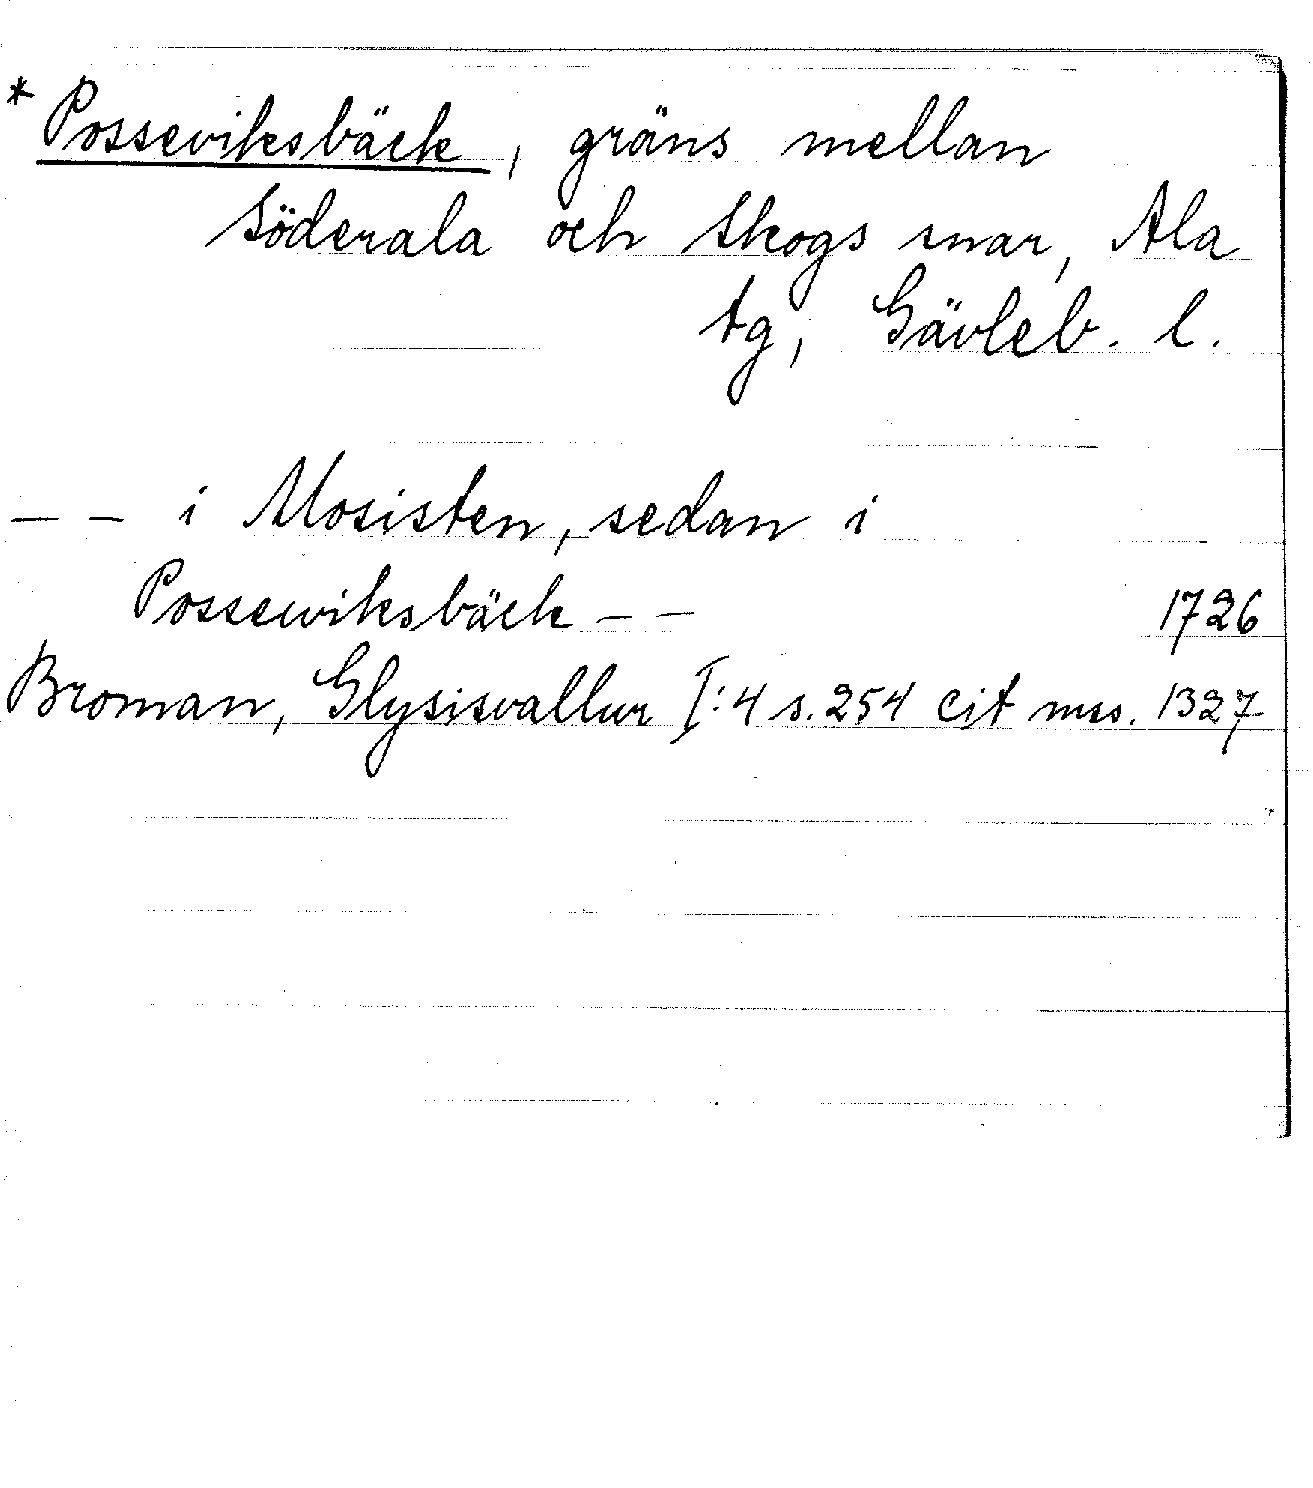 * Posseviksbäck, gräns mellan
Söderala och Skogs snar, Ala
tg, Gävleb. l.
— — i Mosisten, sedan i
Possewiksbäck — — 1726
Broman, Glysisvallur I:4 s. 254 cit mss. 1327